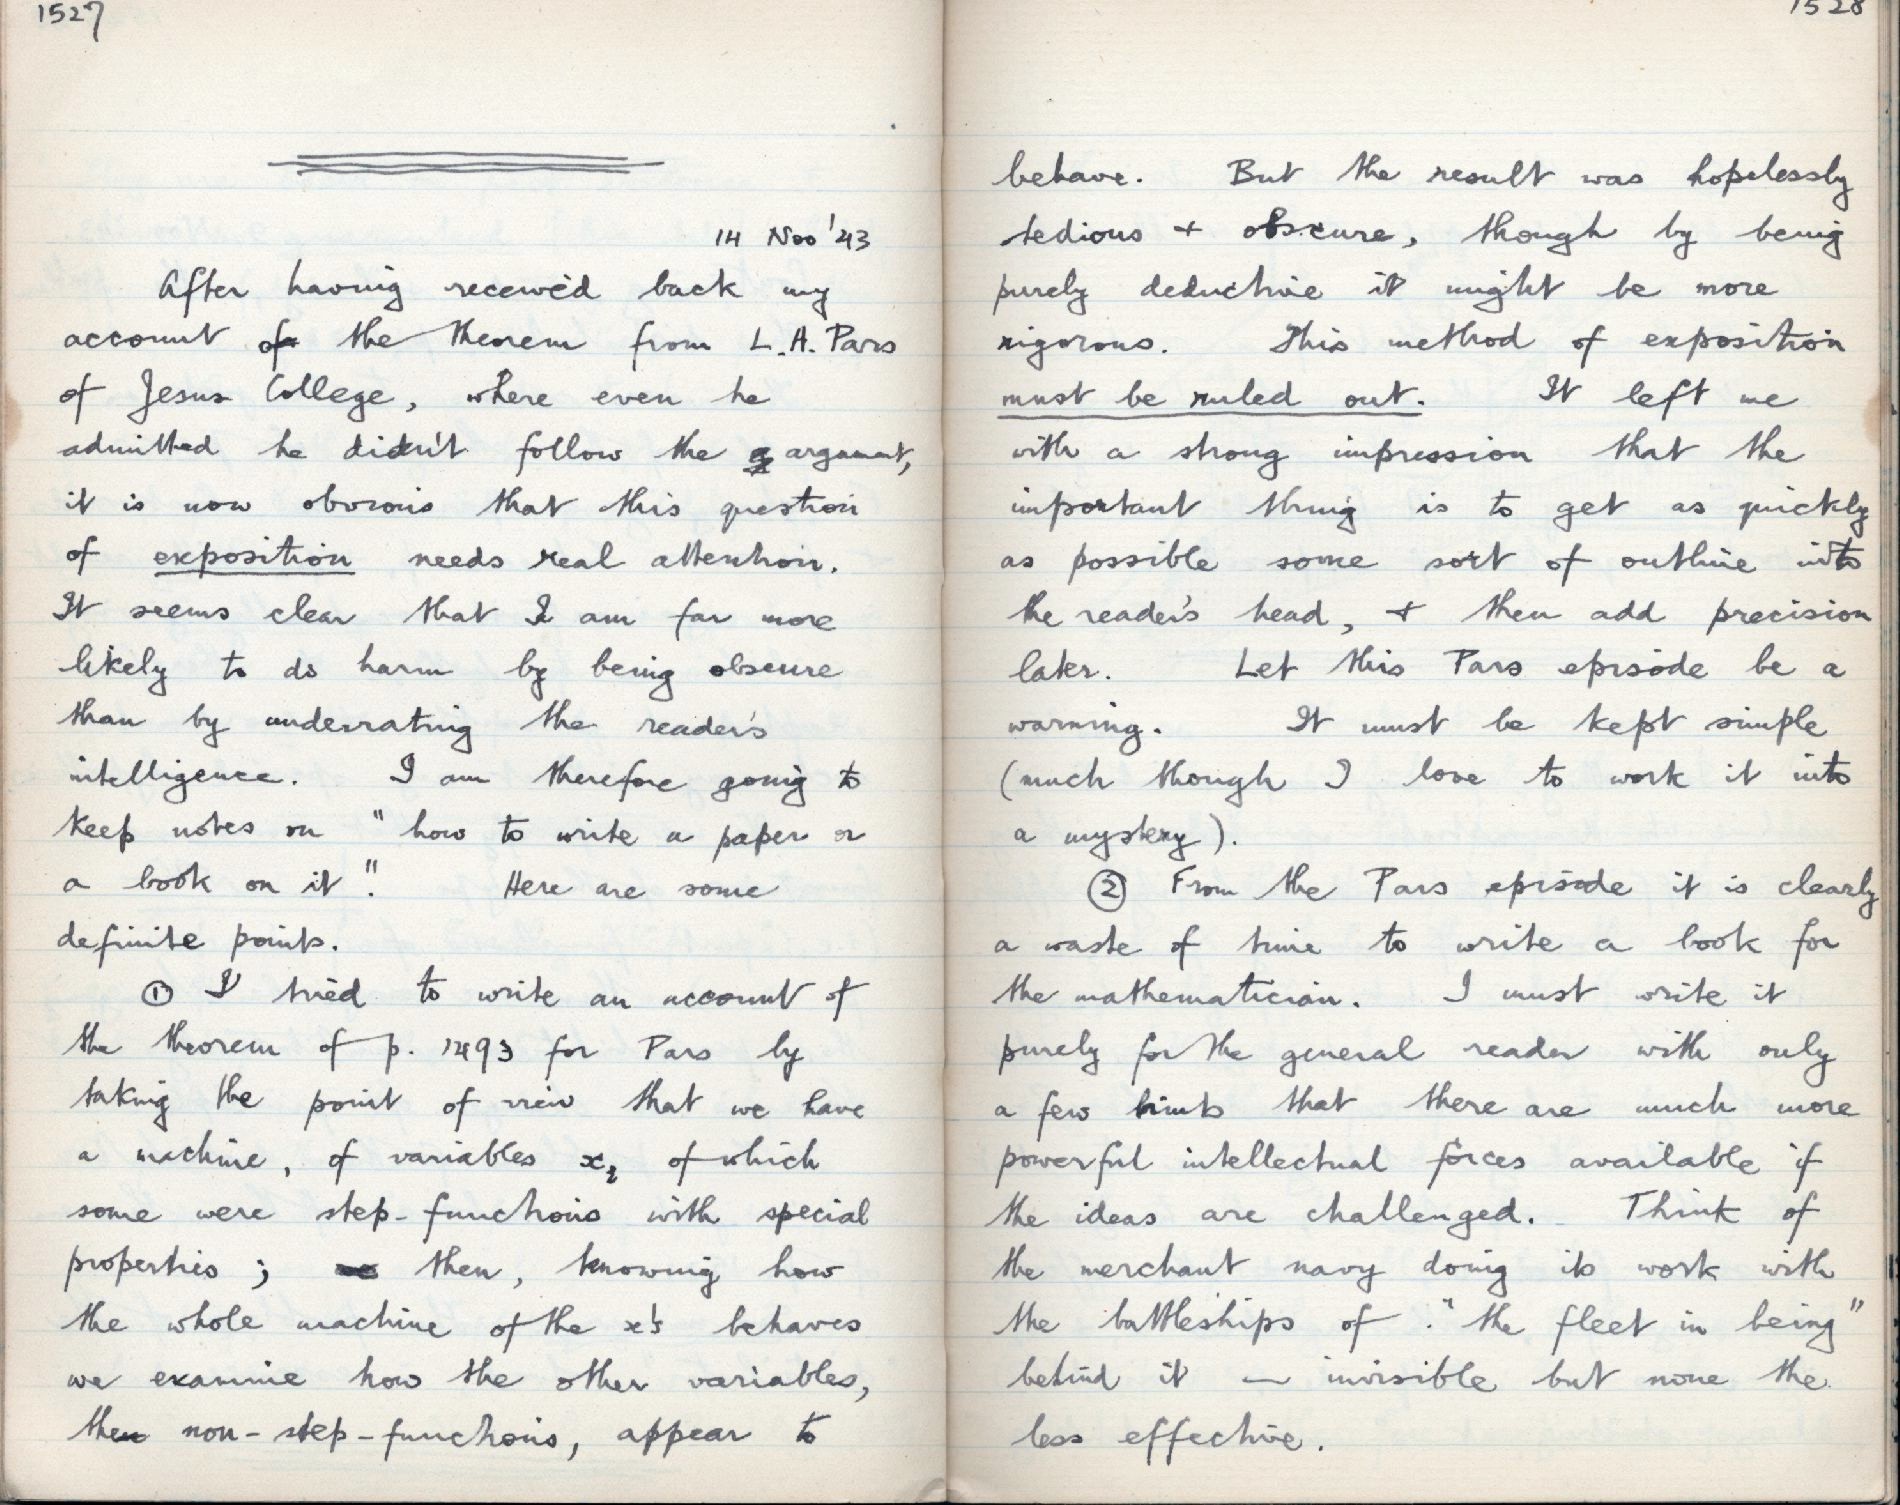 1527
14 Nov '43
After having received back my
account of the theorem from L.A. Pars
of Jesus College, where even he
admitted he didn't follow the argument,
it is now obvious that this question
of exposition needs real attention.
It seems clear that I am far more
likely to do harm by being obscure
than by underrating the reader's
intelligence. I am therefore going to
keep notes on "how to write a paper or
a book on it". Here are some
definite points.
① I tried to write an account of
the theorem of p. 1493 for Pars by
taking the point of view that we have
a machine, of variables x, of which
some were step-functions with special
properties; then, knowing how
the whole machine of the x's behaves
we examine how the other variables,
the non-step-functions, appear to
1528
behave. But the result was hopelessly
tedious + obscure, though by being
purely deductive it might be more
rigorous. This method of exposition
must be ruled out. It left me
with a strong impression that the
important thing is to get as quickly
as possible some sort of outline into
the reader's head, + then add precision
later. Let this Pars episode be a
warning. It must be kept simple
(much though I love to work it into
a mystery).
② From the Pars episode it is clearly
a waste of time to write a book for
the mathematician. I must write it
purely for the general reader with only
a few hints that there are much more
powerful intellectual forces available if
the ideas are challenged. Think of
the merchant navy doing its work with
the battleships of "the fleet in being"
behind it — invisible but none the
less effective.